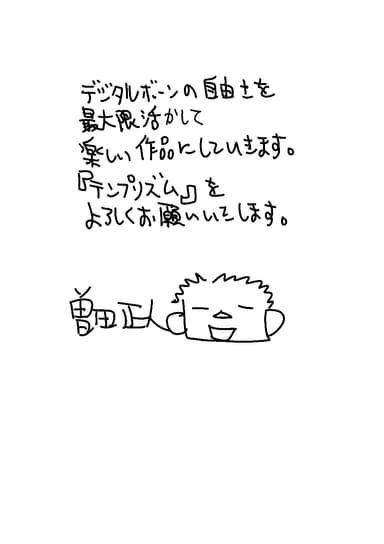 デジタルボーンの自由さを
最大限活かして
楽しい作品にしていきます。
『テンプリズム』を
よろしくお願いいたします。
曽田正人